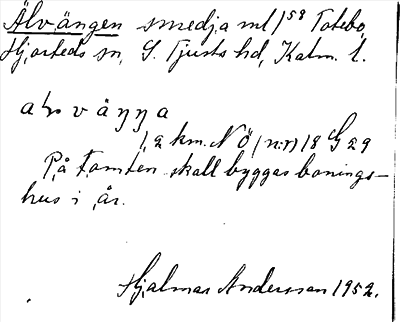 Älvängen smedja ml 1⁵⁸ Totebo,
Hjorteds sn, S. Tjusts hd, Kalm. l.
väŋŋa
1,2 km. NÖ (nr) 18 G 29
På tomten skall byggas bonings-
hus i år.
Hjalmar Andersson 1952.